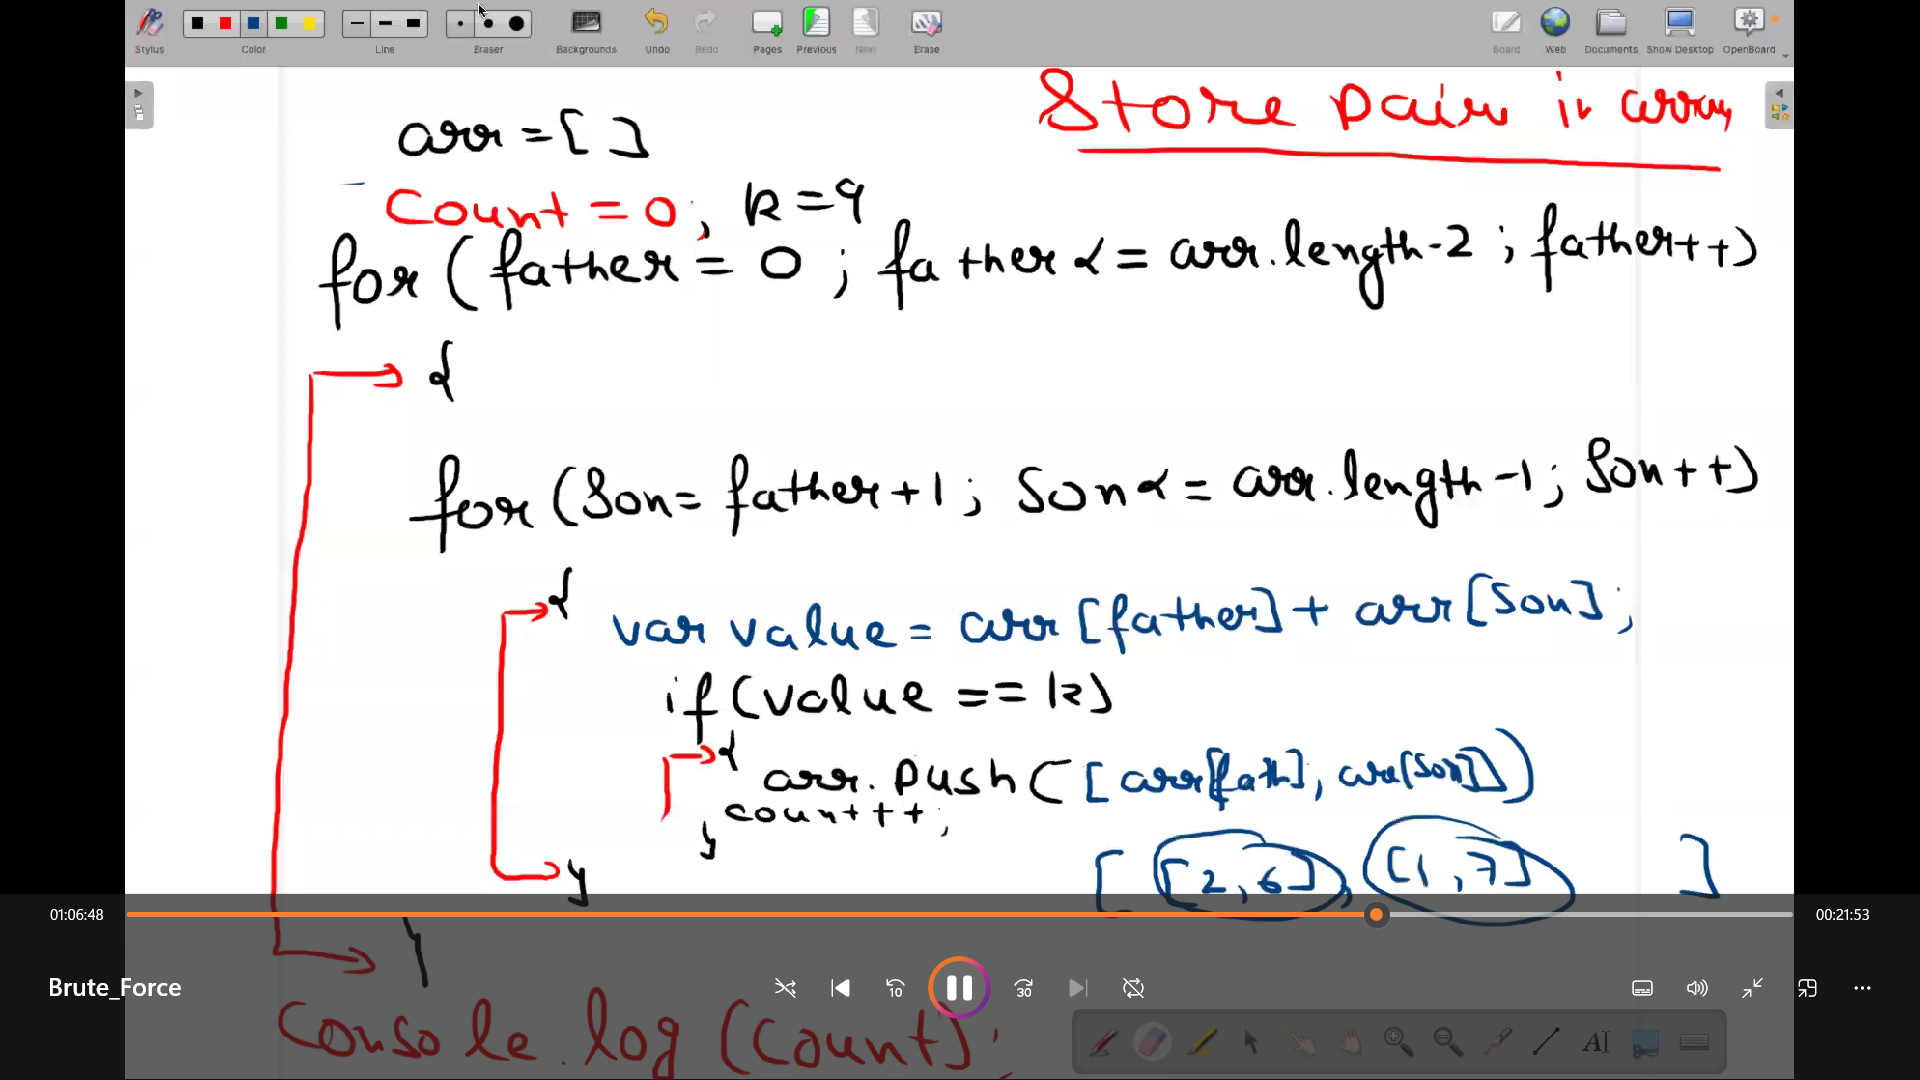 Stylus Color Line Eraser Backgrounds Undo Redo Pages Previous Next Erase Board Web Documents Show Desktop OpenBoard
Store pair in array
arr = [ ]
Count = 0, k = 9
for ( father = 0 ; father <= arr.length-2 ; father++)
{
for (Son = father+1 ; Son <= arr.length-1 ; Son++)
{
var value = arr[father] + arr[Son];
if (value == k)
{
arr.push([arr[fath], arr[Son]])
count++;
}
[ [2,6], [1,7] ]
}
01:06:48 00:21:53
}
Brute_Force
10 30
Console.log (Count);